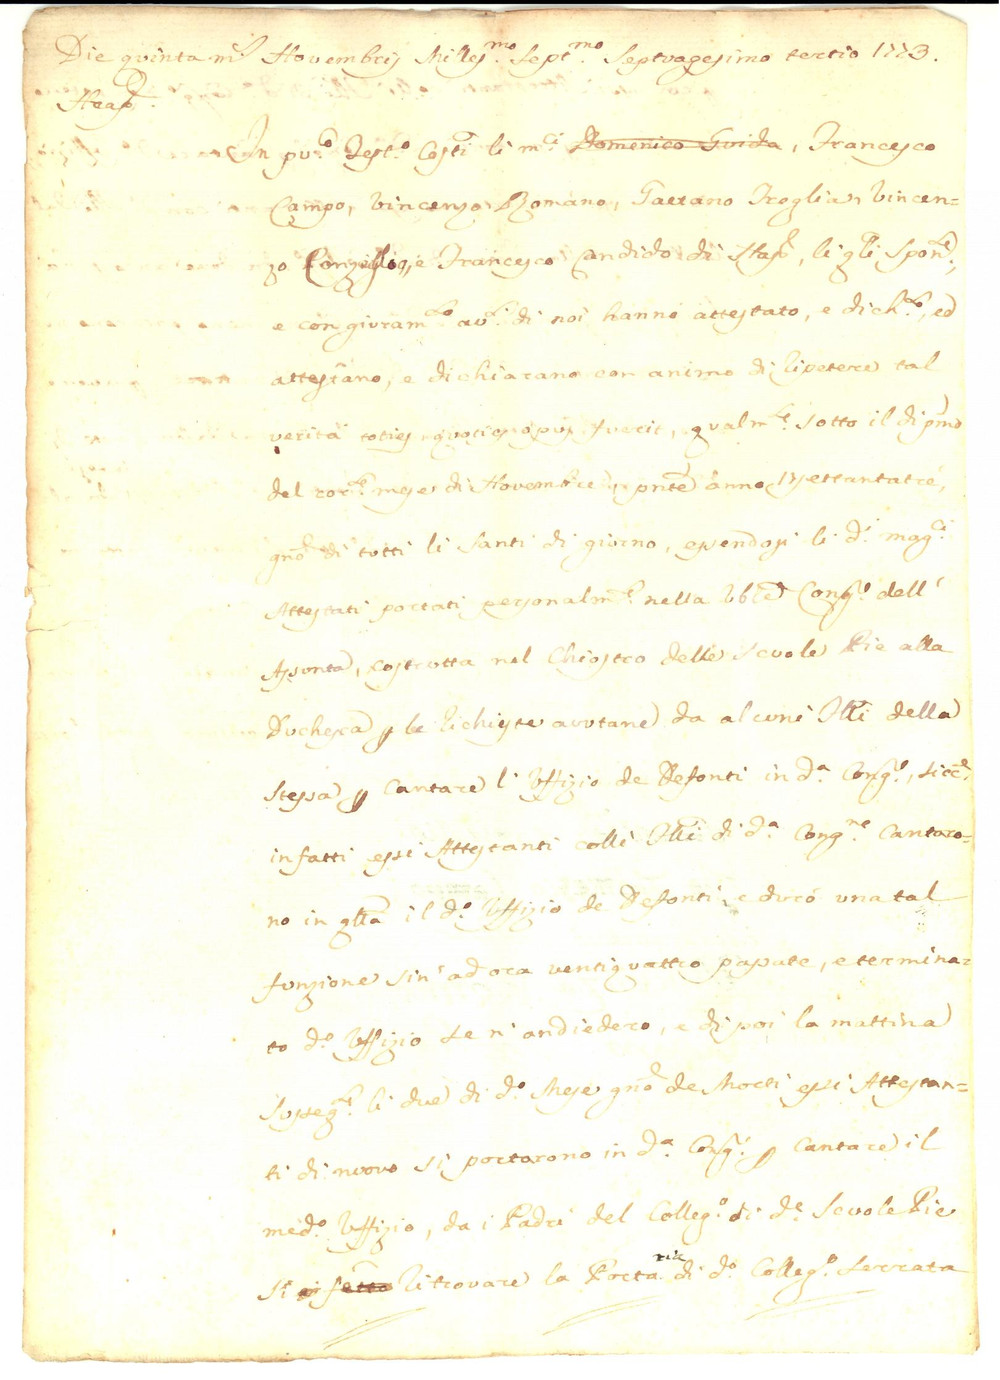 Die quinta m.s Novembris Milles.mo Sept.mo Septuagesimo tertio 1773.
Neap.
In pu.o Test.o Cost.i li m.ci Domenico Guida, Francesco
Campo, Vincenzo Romano, Gaetano Troglia, Vincen=
zo e Francesco Candido di Nap., li q.li spon.te,
e con giuram.to av.ti di noi hanno attestato, e dich.to, ed
attestano, e dichiarano con animo di ripetere tal
verità toties quoties opus fuerit, qualm.te sotto il dì p.mo
del cor.te mese di Novembre, pnte anno settantatré,
gno di tutti li Santi di giorno, essendosi li d.i mag.ci
Attestati portati personalm.te nella Ven.le Cong.e dell'
Assunta, costrutta nel Chiostro delle Scuole Pie alla
Duchesca p le richieste avutane da alcuni Flli della
stessa p cantare l'Uffizio de Defonti in d.a Cong.e, sicc.e
infatti essi Attestanti colli Flli di d.a Cong.ne cantaro=
no in qlla il d.o Uffizio de Defonti, e durò una tal
funzione sin' ad ora ventiquattro passate, e termina=
to d.o Uffizio se n'andiedero, e di poi la mattina
susseg.te li due di d.o Mese gno de Morti essi Attestan=
ti di nuovo si portarono in d.a Cong.e p cantare il
med.o Uffizio, da i Padri del Colleg.o di d.e Scuole Pie
si fe ritrovare la Porta di d.o Colleg.o serrata